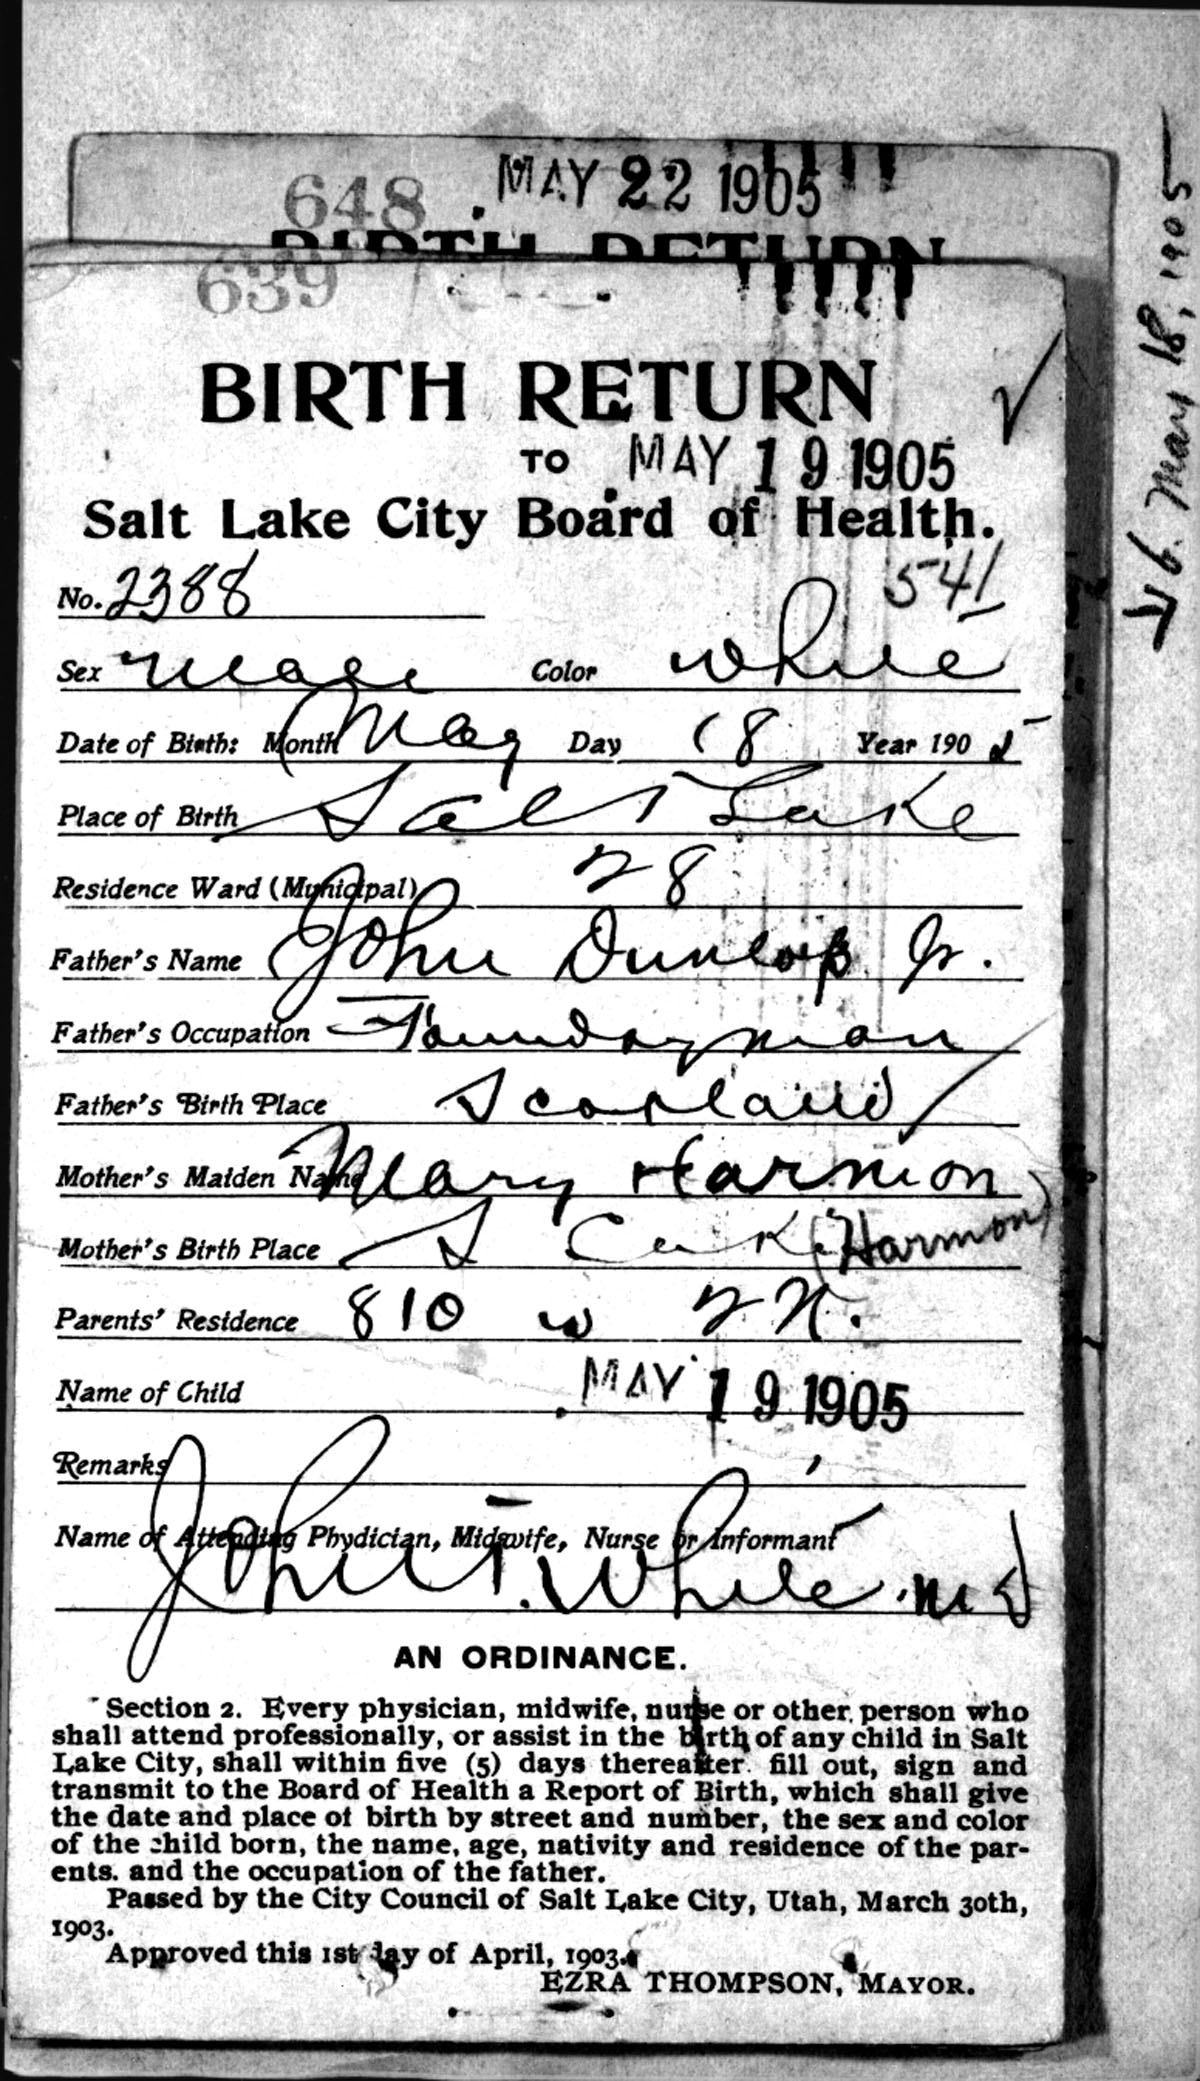 648 MAY 22 1905
BIRTH RETURN
639
BIRTH RETURN
TO MAY 19 1905
Salt Lake City Board of Health.
No. 2388 541
Sex Male Color White
Date of Birth: Month May Day 18 Year 1905
Place of Birth Salt Lake
Residence Ward (Municipal) 28
Father's Name John Dunlop Jr.
Father's Occupation Foundryman
Father's Birth Place Scotland
Mother's Maiden Name Mary Harmon
Mother's Birth Place S (Harmon)
Parents' Residence 810 W 2 N.
Name of Child MAY 19 1905
Remarks
Name of Attending Phydician, Midwife, Nurse or Informant
John T. White M D
AN ORDINANCE.
Section 2. Every physician, midwife, nurse or other person who
shall attend professionally, or assist in the birth of any child in Salt
Lake City, shall within five (5) days thereafter fill out, sign and
transmit to the Board of Health a Report of Birth, which shall give
the date and place of birth by street and number, the sex and color
of the child born, the name, age, nativity and residence of the par-
ents. and the occupation of the father.
Passed by the City Council of Salt Lake City, Utah, March 30th,
1903.
Approved this 1st day of April, 1903.
EZRA THOMPSON, MAYOR.
b. May 18, 1905